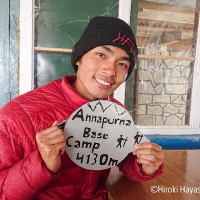 Annapurna
Base
Camp
4130m
©Hiroki Hayas